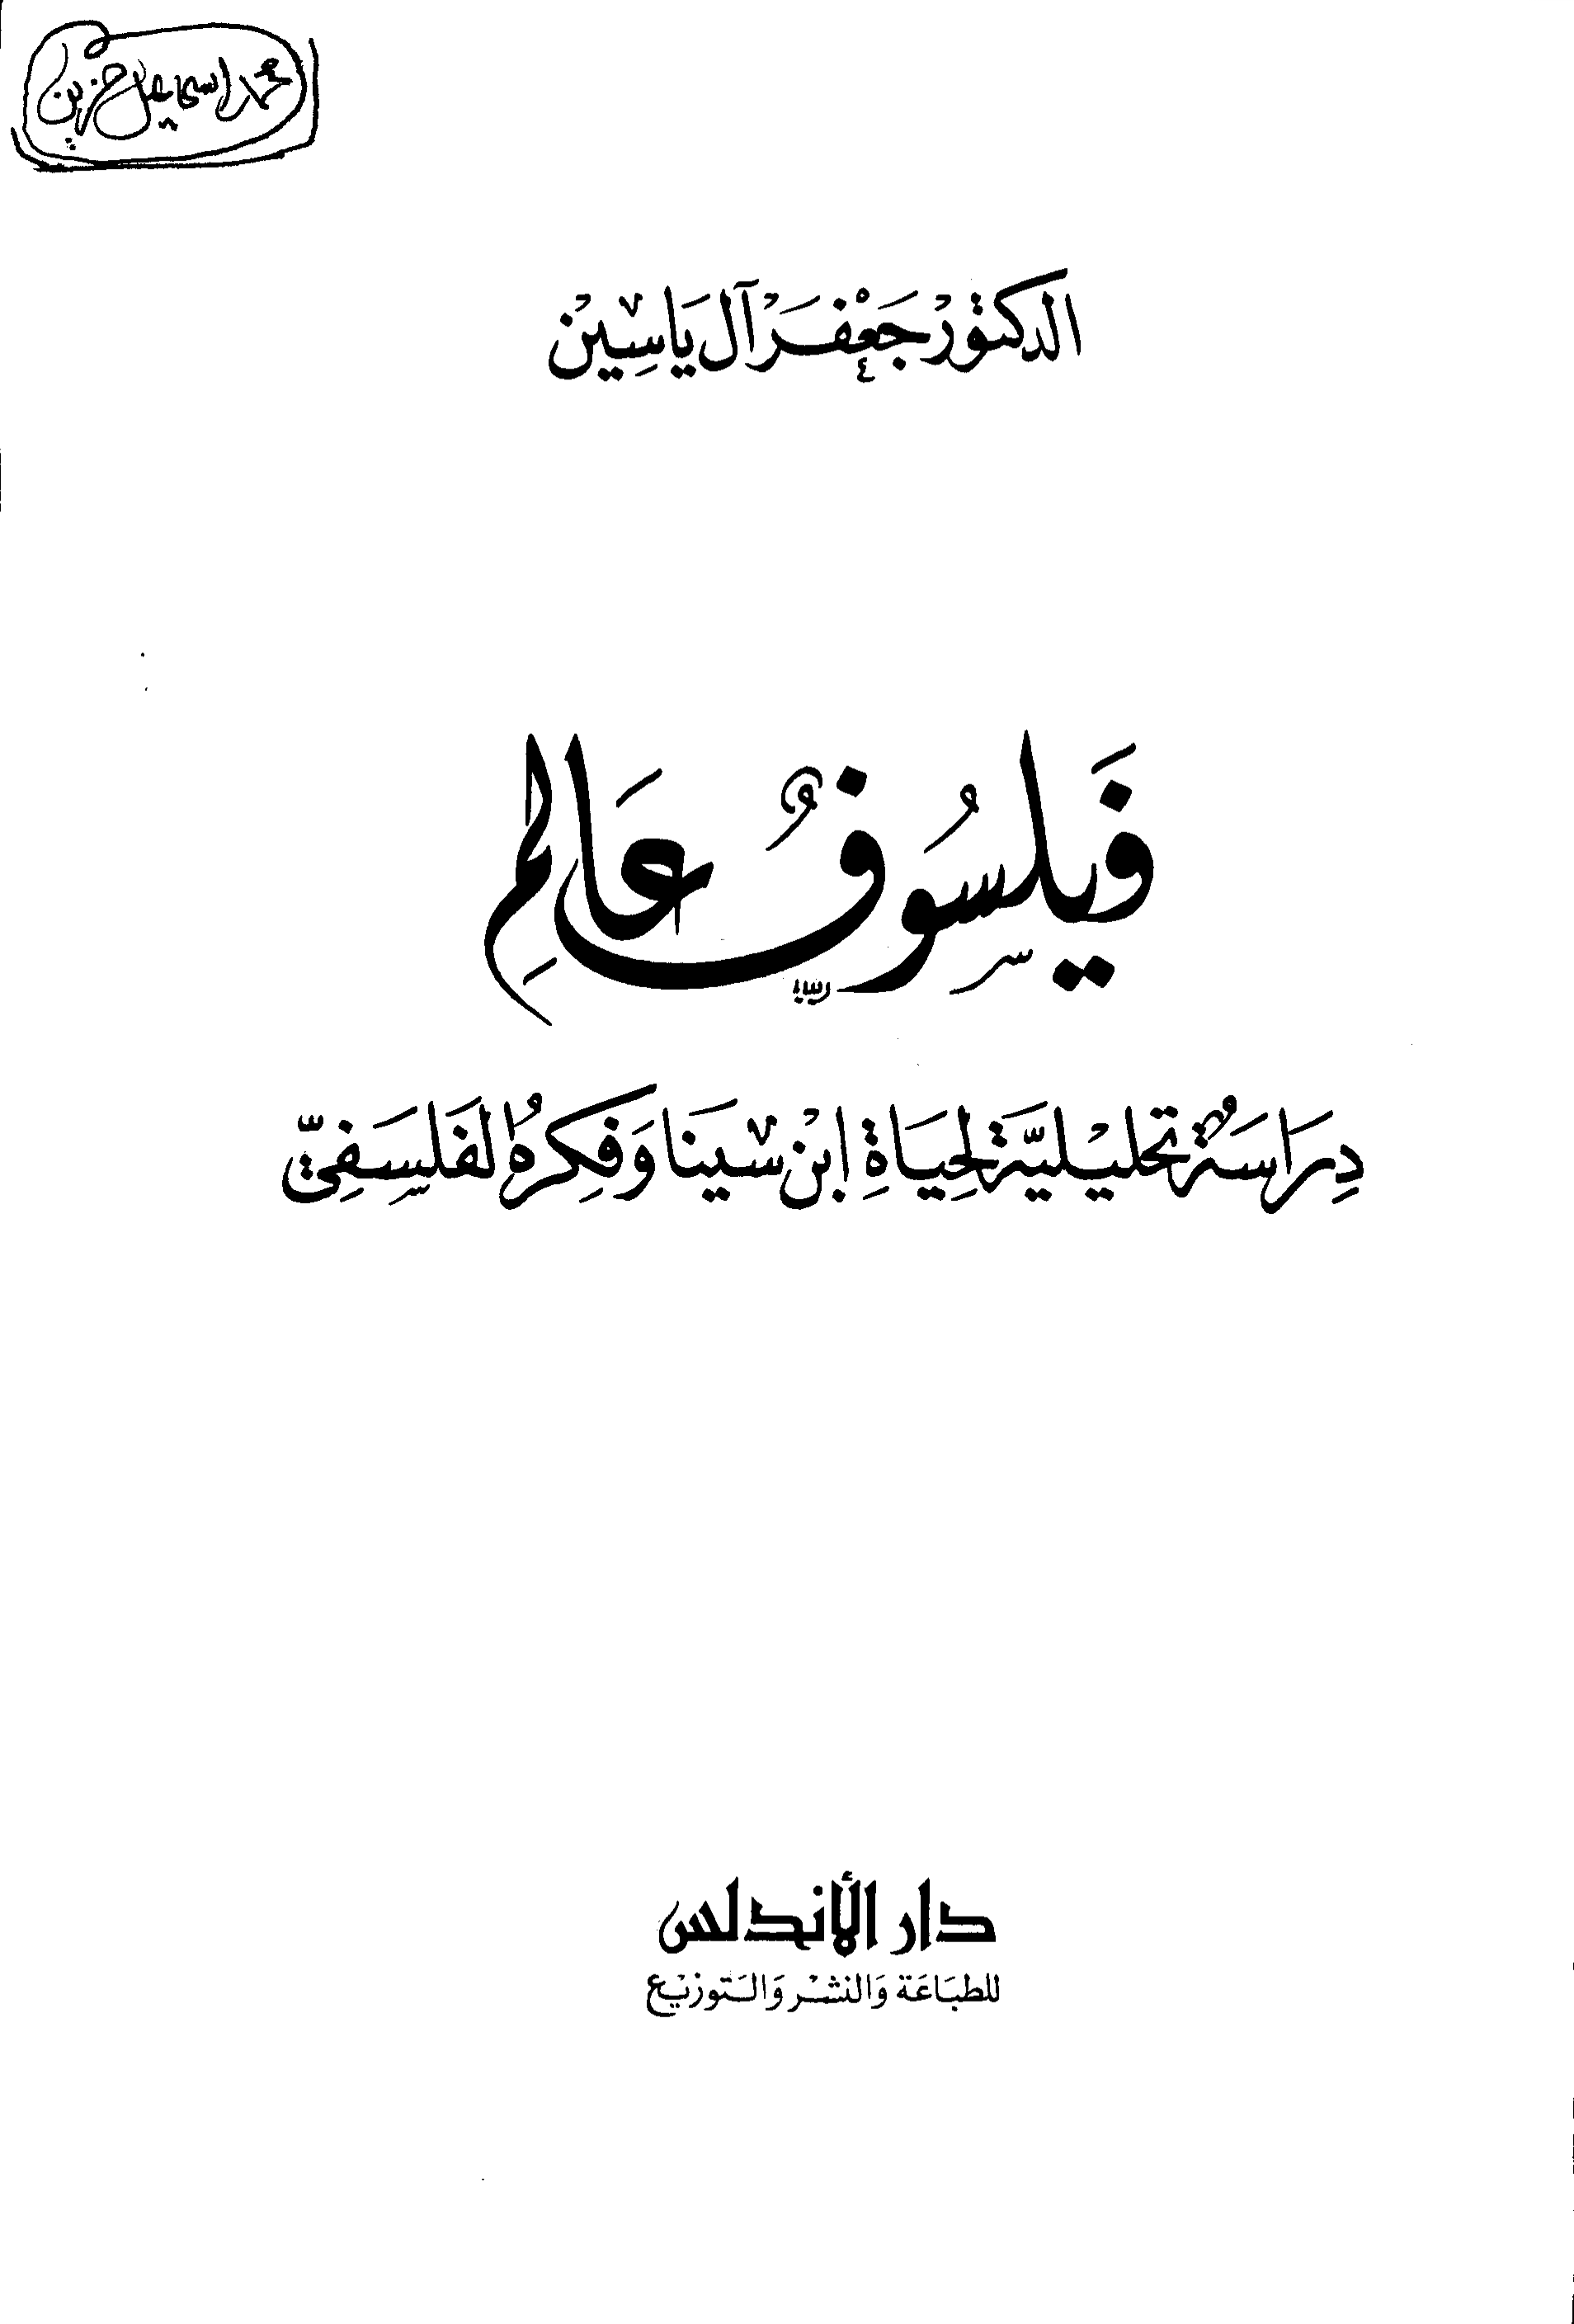 محمد اسماعيل حزين
الدكتور جَعْفَر آل يَاسِين
فَيلسُوفٌ عَالِم
دِرَاسَةٌ تحليْليَّة لِحيَاةِ ابْن سِينَا وَفِكرِهُ الفَلسَفِيّ
دار الأندلس
للطبَاعَة وَالنشْر وَالتَوزيْع